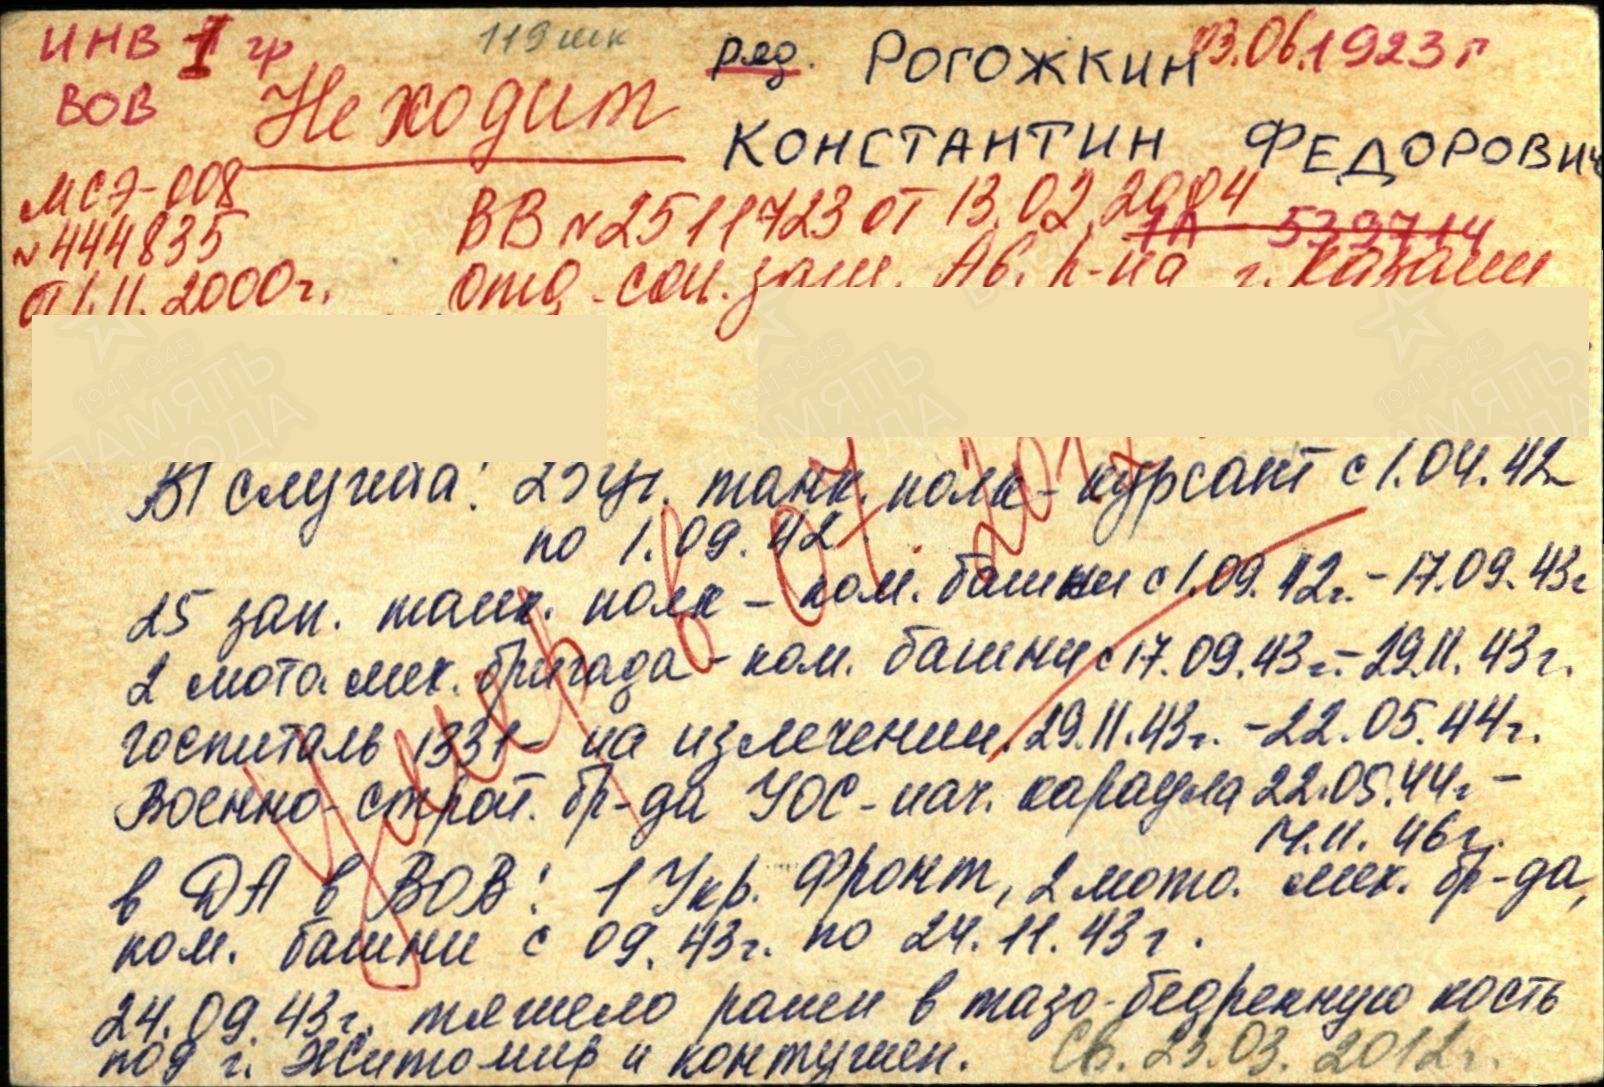 ИНВ I гр
119 шк
ряд. РОГОЖКИН 03.06.1923 г
ВОВ
Не ходит
КОНСТАНТИН ФЕДОРОВИЧ
МСЭ-008
№ 444835
от 1.11.2000г.
ВВ № 2511723 от 13.02.2004
1А - 539714
отд. соц. защ. Ав. р-на г. Казани
В/служба: 25 уч. танк. полк - курсант с 1.04.42
по 1.09.42.
25 зап. танк. полк - ком. башни с 1.09.42г. - 17.09.43г
2 мото. мех. бригада - ком. башни с 17.09.43г. - 29.11.43г.
госпиталь 1331 - на излечении. 29.11.43г. - 22.05.44г.
Военно-строит. бр-да УОС - нач. караула 22.05.44г. -
14.11.46г.
в ДА в ВОВ: 1 Укр. Фронт, 2 мото. мех. бр-да,
ком. башни с 09.43г. по 24.11.43г.
24.09.43г. тяжело ранен в тазо-бедренную кость
под г. Житомир и контужен.
Св. 23.03.2012г.
Умер в 07.2012
1941-1945
ПАМЯТЬ
НАРОДА
1941-1945
ПАМЯТЬ
НАРОДА
1941-1945
ПАМЯТЬ
НАРОДА